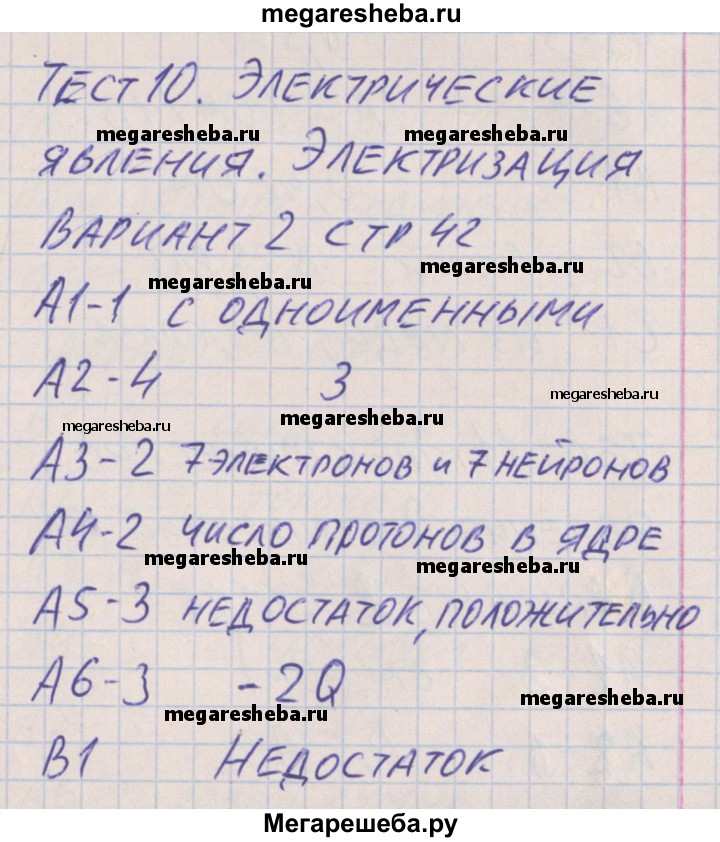 megaresheba.ru
Тест 10. Электрические
megaresheba.ru megaresheba.ru
явления. Электризация
Вариант 2 стр 42
megaresheba.ru
megaresheba.ru
А1-1 с одноименными
А2-4 3
megaresheba.ru
megaresheba.ru
megaresheba.ru
А3-2 7 электронов и 7 нейронов
А4-2 число протонов в ядре
megaresheba.ru
megaresheba.ru
А5-3 недостаток, положительно
А6-3 -2Q
megaresheba.ru
megaresheba.ru
В1 Недостаток
Мегарешеба.ру